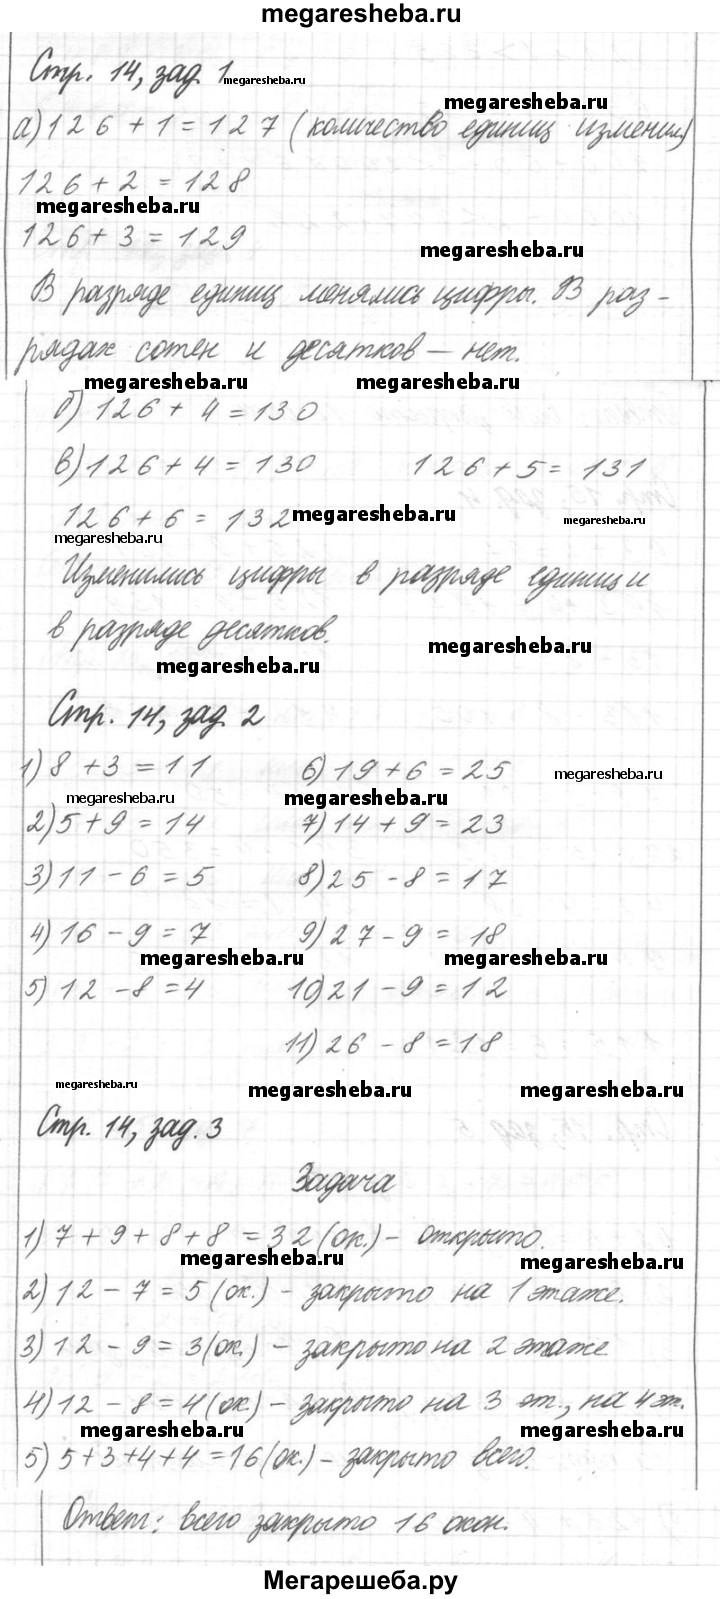 megaresheba.ru
Стр. 14, зад. 1 megaresheba.ru
megaresheba.ru
а) 126 + 1 = 127 (количество единиц изменил)
126 + 2 = 128
megaresheba.ru
126 + 3 = 129
megaresheba.ru
В разряде единиц менялись цифры. В раз-
рядах сотен и десятков – нет.
megaresheba.ru megaresheba.ru
б) 126 + 4 = 130
в) 126 + 4 = 130 126 + 5 = 131
126 + 6 = 132 megaresheba.ru megaresheba.ru
megaresheba.ru
Изменились цифры в разряде единиц и
в разряде десятков.
megaresheba.ru
megaresheba.ru
Стр. 14, зад. 2
1) 8 + 3 = 11 6) 19 + 6 = 25 megaresheba.ru
megaresheba.ru megaresheba.ru
2) 5 + 9 = 14 7) 14 + 9 = 23
3) 11 – 6 = 5 8) 25 – 8 = 17
4) 16 – 9 = 7 9) 27 – 9 = 18
megaresheba.ru megaresheba.ru
5) 12 – 8 = 4 10) 21 – 9 = 12
11) 26 – 8 = 18
megaresheba.ru megaresheba.ru megaresheba.ru
Стр. 14, зад. 3
Задача
1) 7 + 9 + 8 + 8 = 32 (ок.) – открыто.
megaresheba.ru megaresheba.ru
2) 12 – 7 = 5 (ок.) – закрыто на 1 этаже.
3) 12 – 9 = 3 (ок.) – закрыто на 2 этаже
4) 12 – 8 = 4 (ок.) – закрыто на 3 эт., на 4 эт.
megaresheba.ru megaresheba.ru
5) 5 + 3 + 4 + 4 = 16 (ок.) – закрыто всего.
Ответ: всего закрыто 16 окон.
Мегарешеба.ру